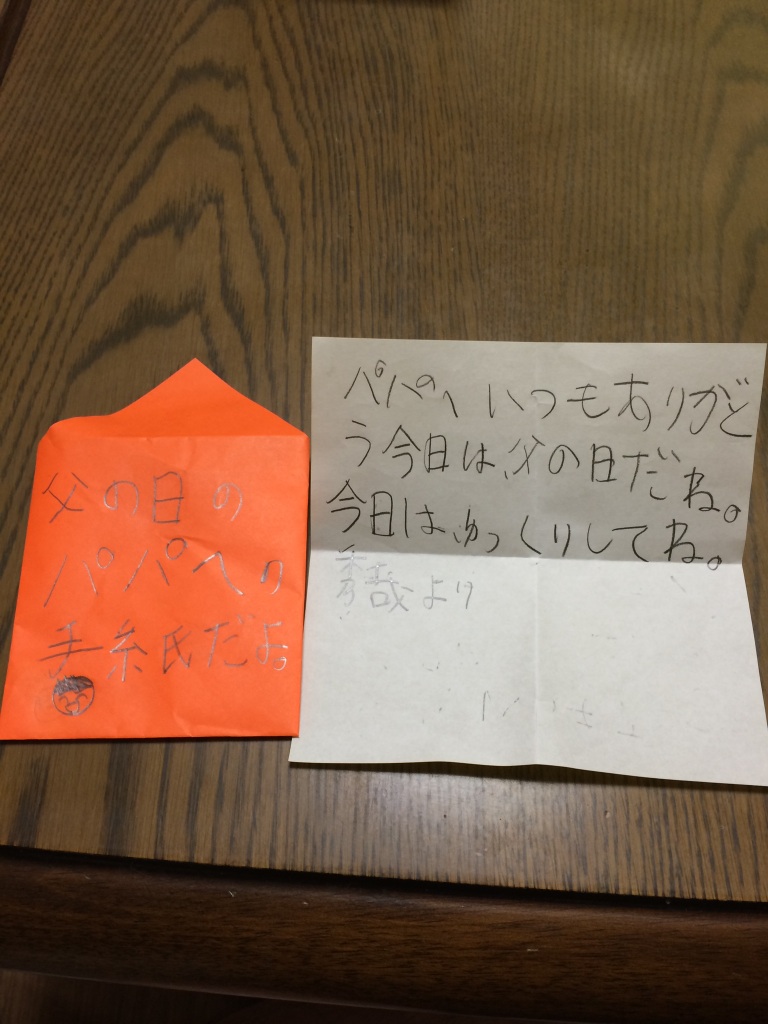 父の日の
パパへの
手糸氏だよ。
パパへ いつもありがど
う今日は、父の日だね。
今日は、ゆっくりしてね。
秀哉より